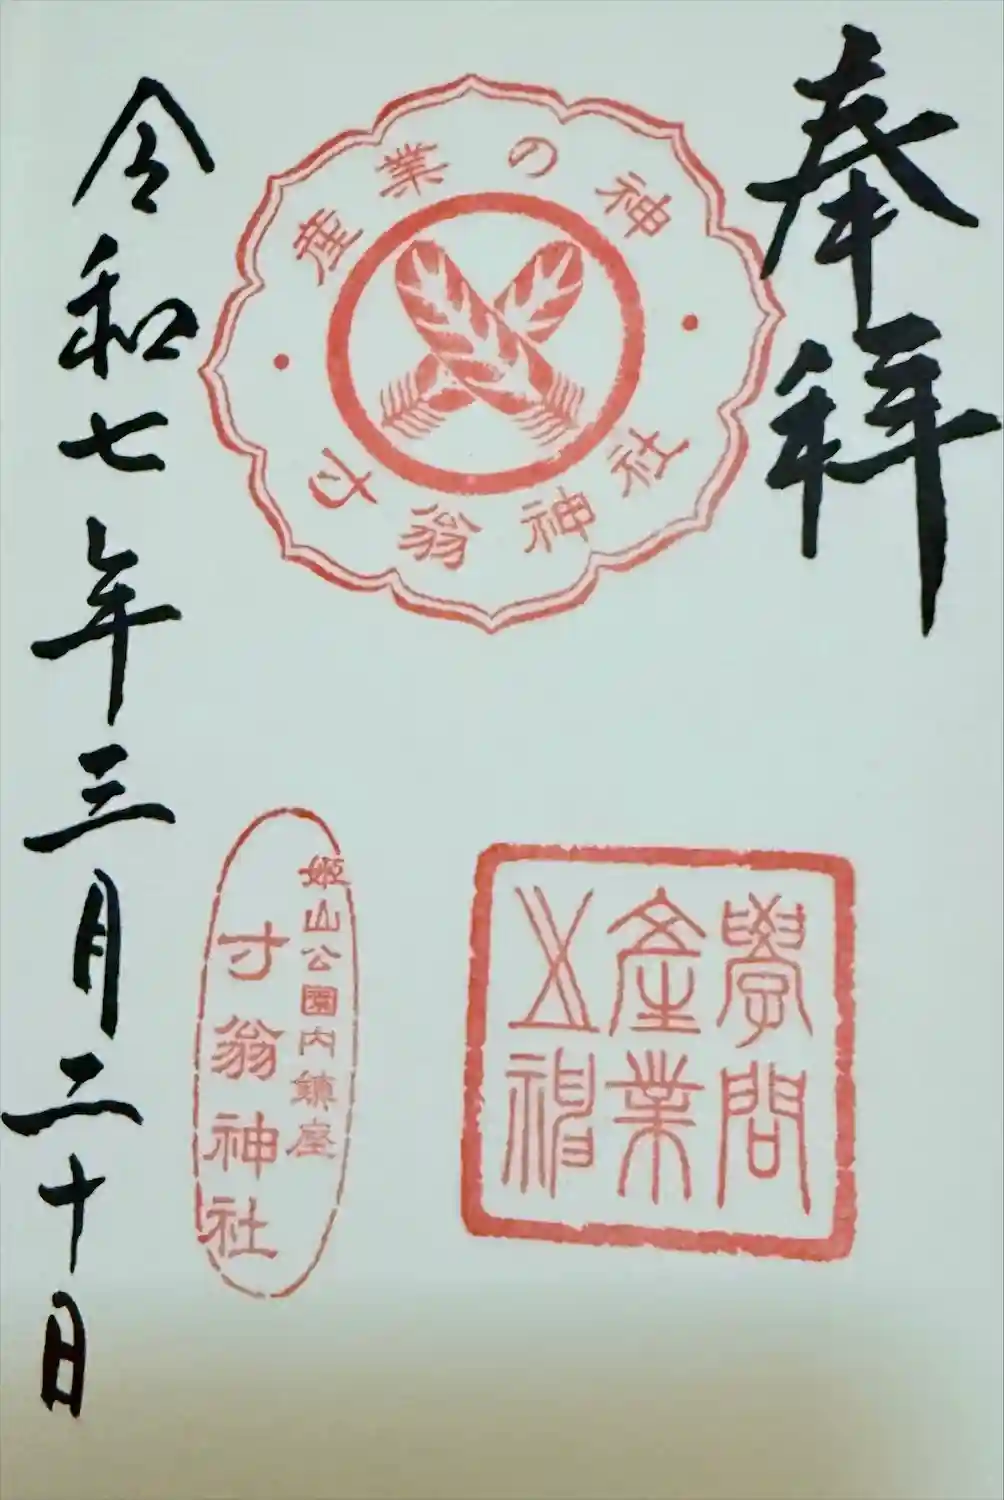 奉拝
産業の神
寸翁神社
學問
産業
五視
姫山公園内鎮座
寸翁神社
令和七年三月二十日